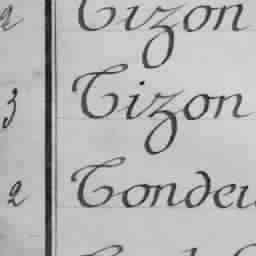 2 Tizon
3 Tizon
2